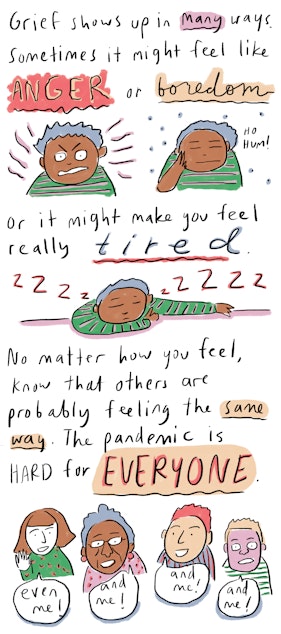 Grief shows up in many ways.
Sometimes it might feel like
ANGER or boredom
HO
HUM!
or it might make you feel
really tired.
ZZZZ ZZZZZ
No matter how you feel,
know that others are
probably feeling the same
way. The pandemic is
HARD for EVERYONE.
even
me!
and
me!
and
me!
and
me!